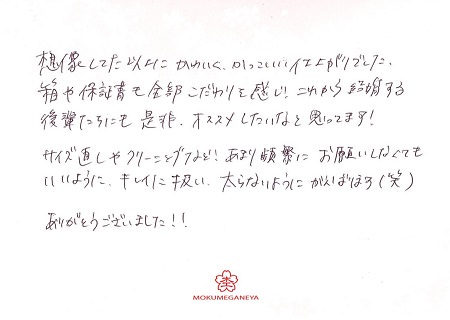 想像してた以上にかわいく、かっこいい仕上がりでした。
箱や保証書も全部こだわりを感じ、これから結婚する
後輩たちにも是非、オススメしたいなと思ってます!
サイズ直しやクリーニングなど、あまり頻繁にお願いしなくても
いいように、キレイに扱い、太らないようにがんばろう(笑)
ありがとうございました!!
MOKUMEGANEYA